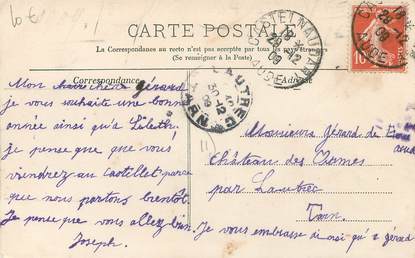 10 €
CARTE POSTALE
La Correspondance au recto n'est pas acceptée par tous les pays étrangers
(Se renseigner à la Poste)
Correspondance
Adresse
CASTELNAUDARY
18
29-12
09
AUDE
LAUTREC
30-12
09
TARN
10
Mon cher cherie gérard
je vous souhaite une bonne
année ainsi qu'à
je pense que vous
viendrez au Castellet parce
que nous partons bientôt.
Je pense que vous allez bien.
Joseph.
Monsieur Gérard de
Château des Ormes
par Lautrec
Tarn
Je vous embrasse ainsi qu'à gérard